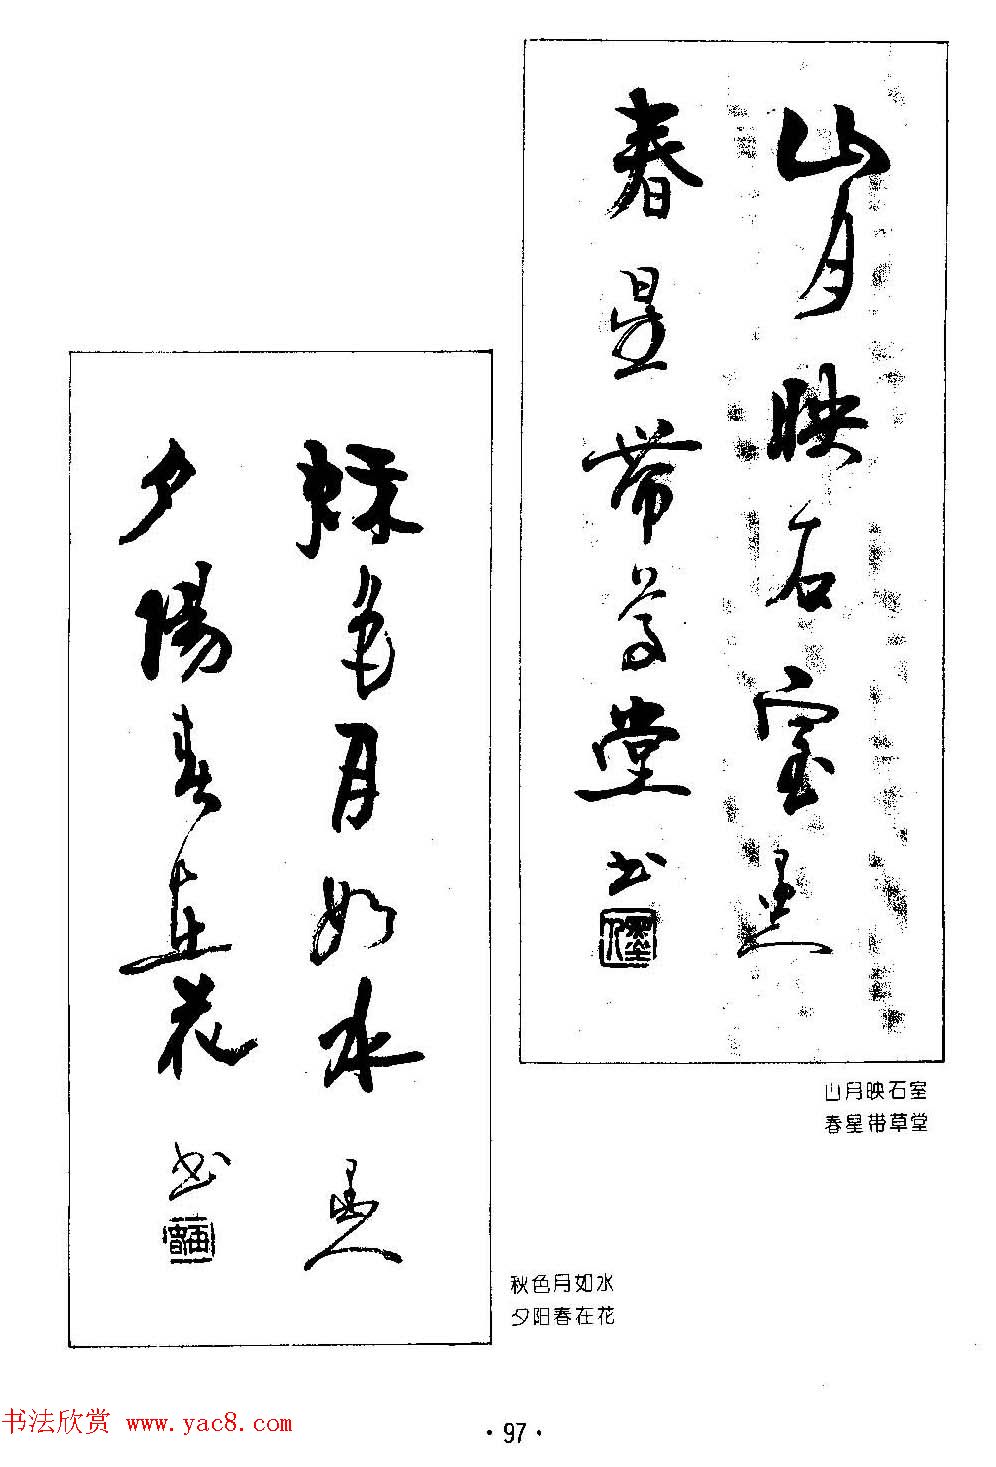 山月映石室 墨人
春星带草堂 书
山月映石室
春星带草堂
秋色月如水 墨人
夕陽春在花 书
秋色月如水
夕阳春在花
书法欣赏 www.yac8.com
·97·